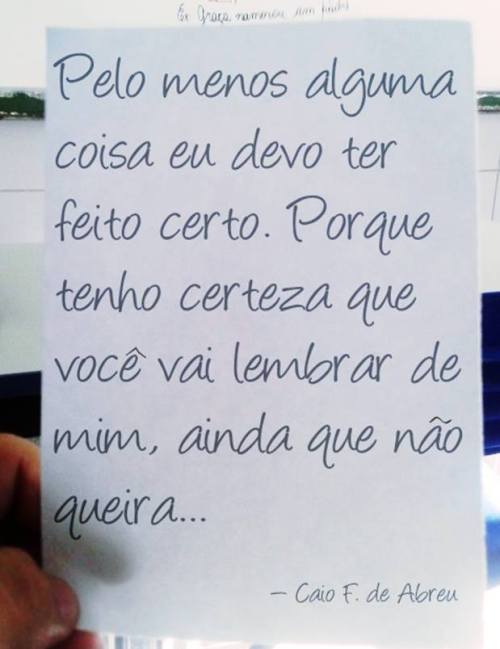 Pelo menos alguma
coisa eu devo ter
feito certo. Porque
tenho certeza que
você vai lembrar de
mim, ainda que não
queira...
– Caio F. de Abreu